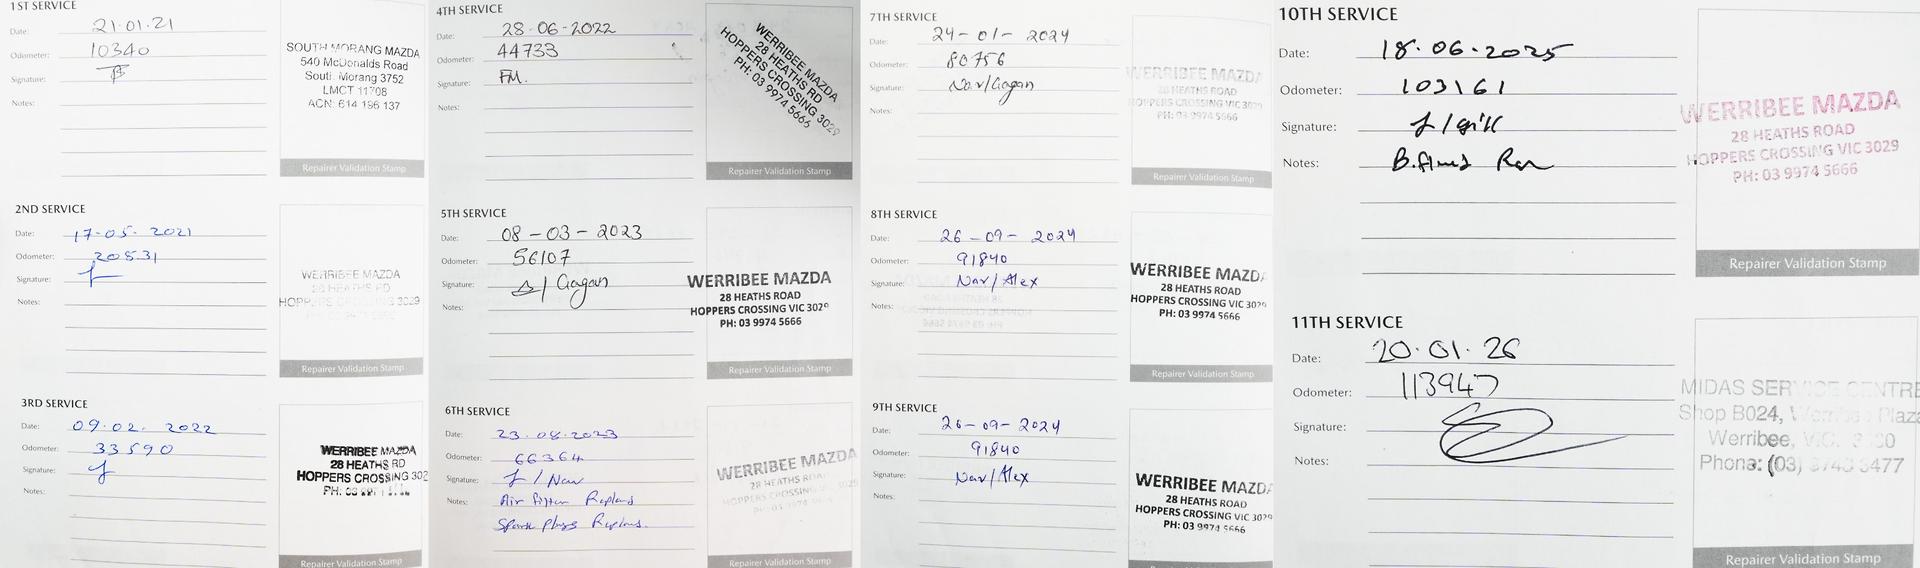 1ST SERVICE
Date: 21·01·21
Odometer: 10340
Signature:
Notes:
SOUTH MORANG MAZDA
540 McDonalds Road
South Morang 3752
LMCT 11708
ACN: 614 196 137
Repairer Validation Stamp
2ND SERVICE
Date: 17-05-2021
Odometer: 20531
Signature:
Notes:
WERRIBEE MAZDA
28 HEATHS RD
HOPPERS CROSSING 3029
Repairer Validation Stamp
3RD SERVICE
Date: 09.02.2022
Odometer: 33590
Signature:
Notes:
WERRIBEE MAZDA
28 HEATHS RD
HOPPERS CROSSING 302
Repairer Validation Stamp
4TH SERVICE
Date: 28-06-2022
Odometer: 44733
Signature: FM.
Notes:
WERRIBEE MAZDA
28 HEATHS RD
HOPPERS CROSSING 3029
PH: 03 9974 5666
Repairer Validation Stamp
5TH SERVICE
Date: 08-03-2023
Odometer: 56107
Signature: / Gagan
Notes:
WERRIBEE MAZDA
28 HEATHS ROAD
HOPPERS CROSSING VIC 3029
PH: 03 9974 5666
Repairer Validation Stamp
6TH SERVICE
Date: 23.08.2023
Odometer: 66364
Signature: / Nav
Notes: Air
Spark plugs
WERRIBEE MAZDA
28 HEATHS ROAD
Repairer Validation Stamp
7TH SERVICE
Date: 24-01-2024
Odometer: 80756
Signature: Nav/Gagan
Notes:
WERRIBEE MAZDA
28 HEATHS ROAD
HOPPERS CROSSING VIC 3029
PH: 03 9974 5666
Repairer Validation Stamp
8TH SERVICE
Date: 26-09-2024
Odometer: 91840
Signature: Nav/Alex
Notes:
WERRIBEE MAZDA
28 HEATHS ROAD
HOPPERS CROSSING VIC 3029
PH: 03 9974 5666
Repairer Validation Stamp
9TH SERVICE
Date: 26-09-2024
Odometer: 91840
Signature: Nav/Alex
Notes:
WERRIBEE MAZDA
28 HEATHS ROAD
HOPPERS CROSSING VIC 3029
PH: 03 9974 5666
Repairer Validation Stamp
10TH SERVICE
Date: 18·06·2025
Odometer: 103161
Signature: / gill
Notes:
WERRIBEE MAZDA
28 HEATHS ROAD
HOPPERS CROSSING VIC 3029
PH: 03 9974 5666
Repairer Validation Stamp
11TH SERVICE
Date: 20·01·26
Odometer: 113947
Signature:
Notes:
MIDAS SERVICE CENTRE
Shop B024, Werribee Plaza
Werribee, VIC.
Phone: (03) 9743 3477
Repairer Validation Stamp